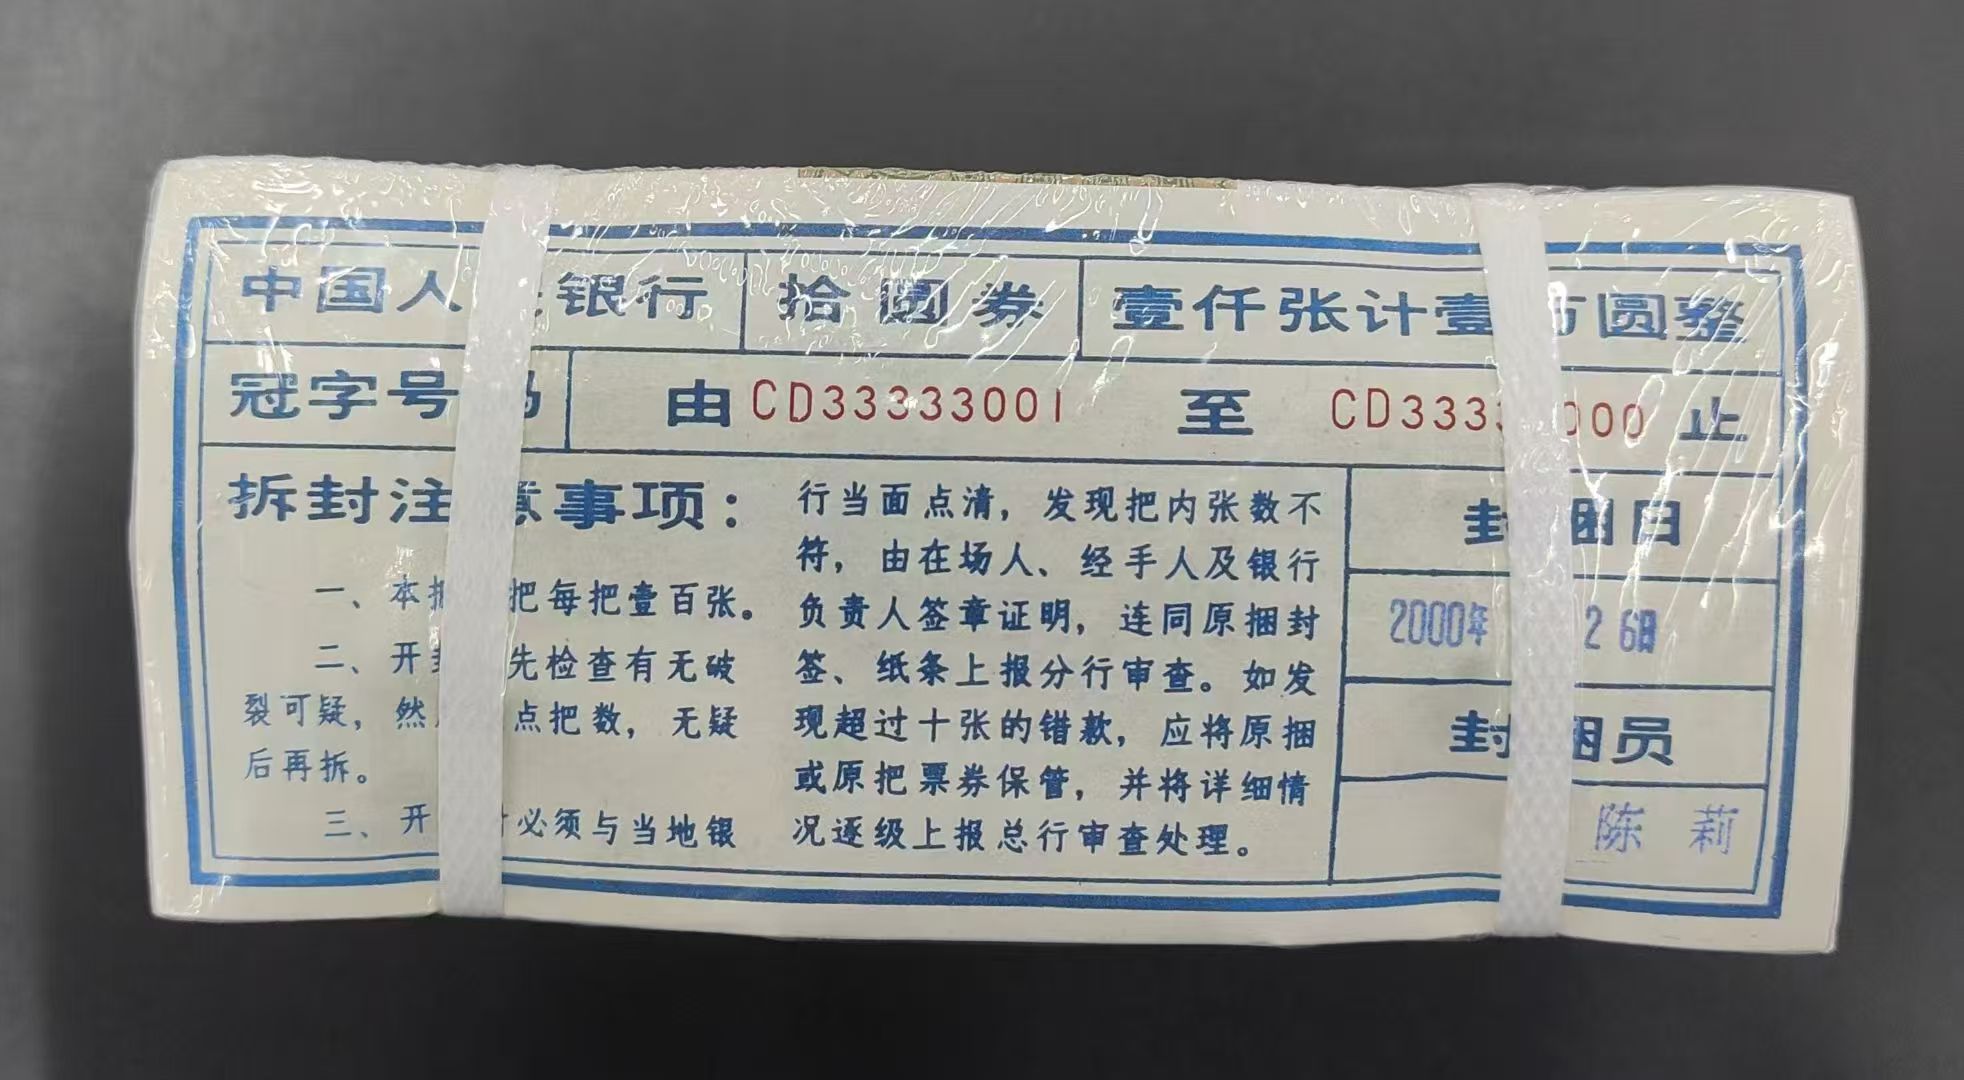 中国人 银行 拾圆券 壹仟张计壹 万圆整
冠字号码 由 CD33333001 至 CD333 000 止
拆封注意事项：
一、本捆 把每把壹百张。
二、开封 先检查有无破
裂可疑，然 点把数，无疑
后再拆。
三、开 必须与当地银
行当面点清，发现把内张数不
符，由在场人、经手人及银行
负责人签章证明，连同原捆封
签、纸条上报分行审查。如发
现超过十张的错款，应将原捆
或原把票券保管，并将详细情
况逐级上报总行审查处理。
封捆日
2000年 26日
封捆员
陈莉